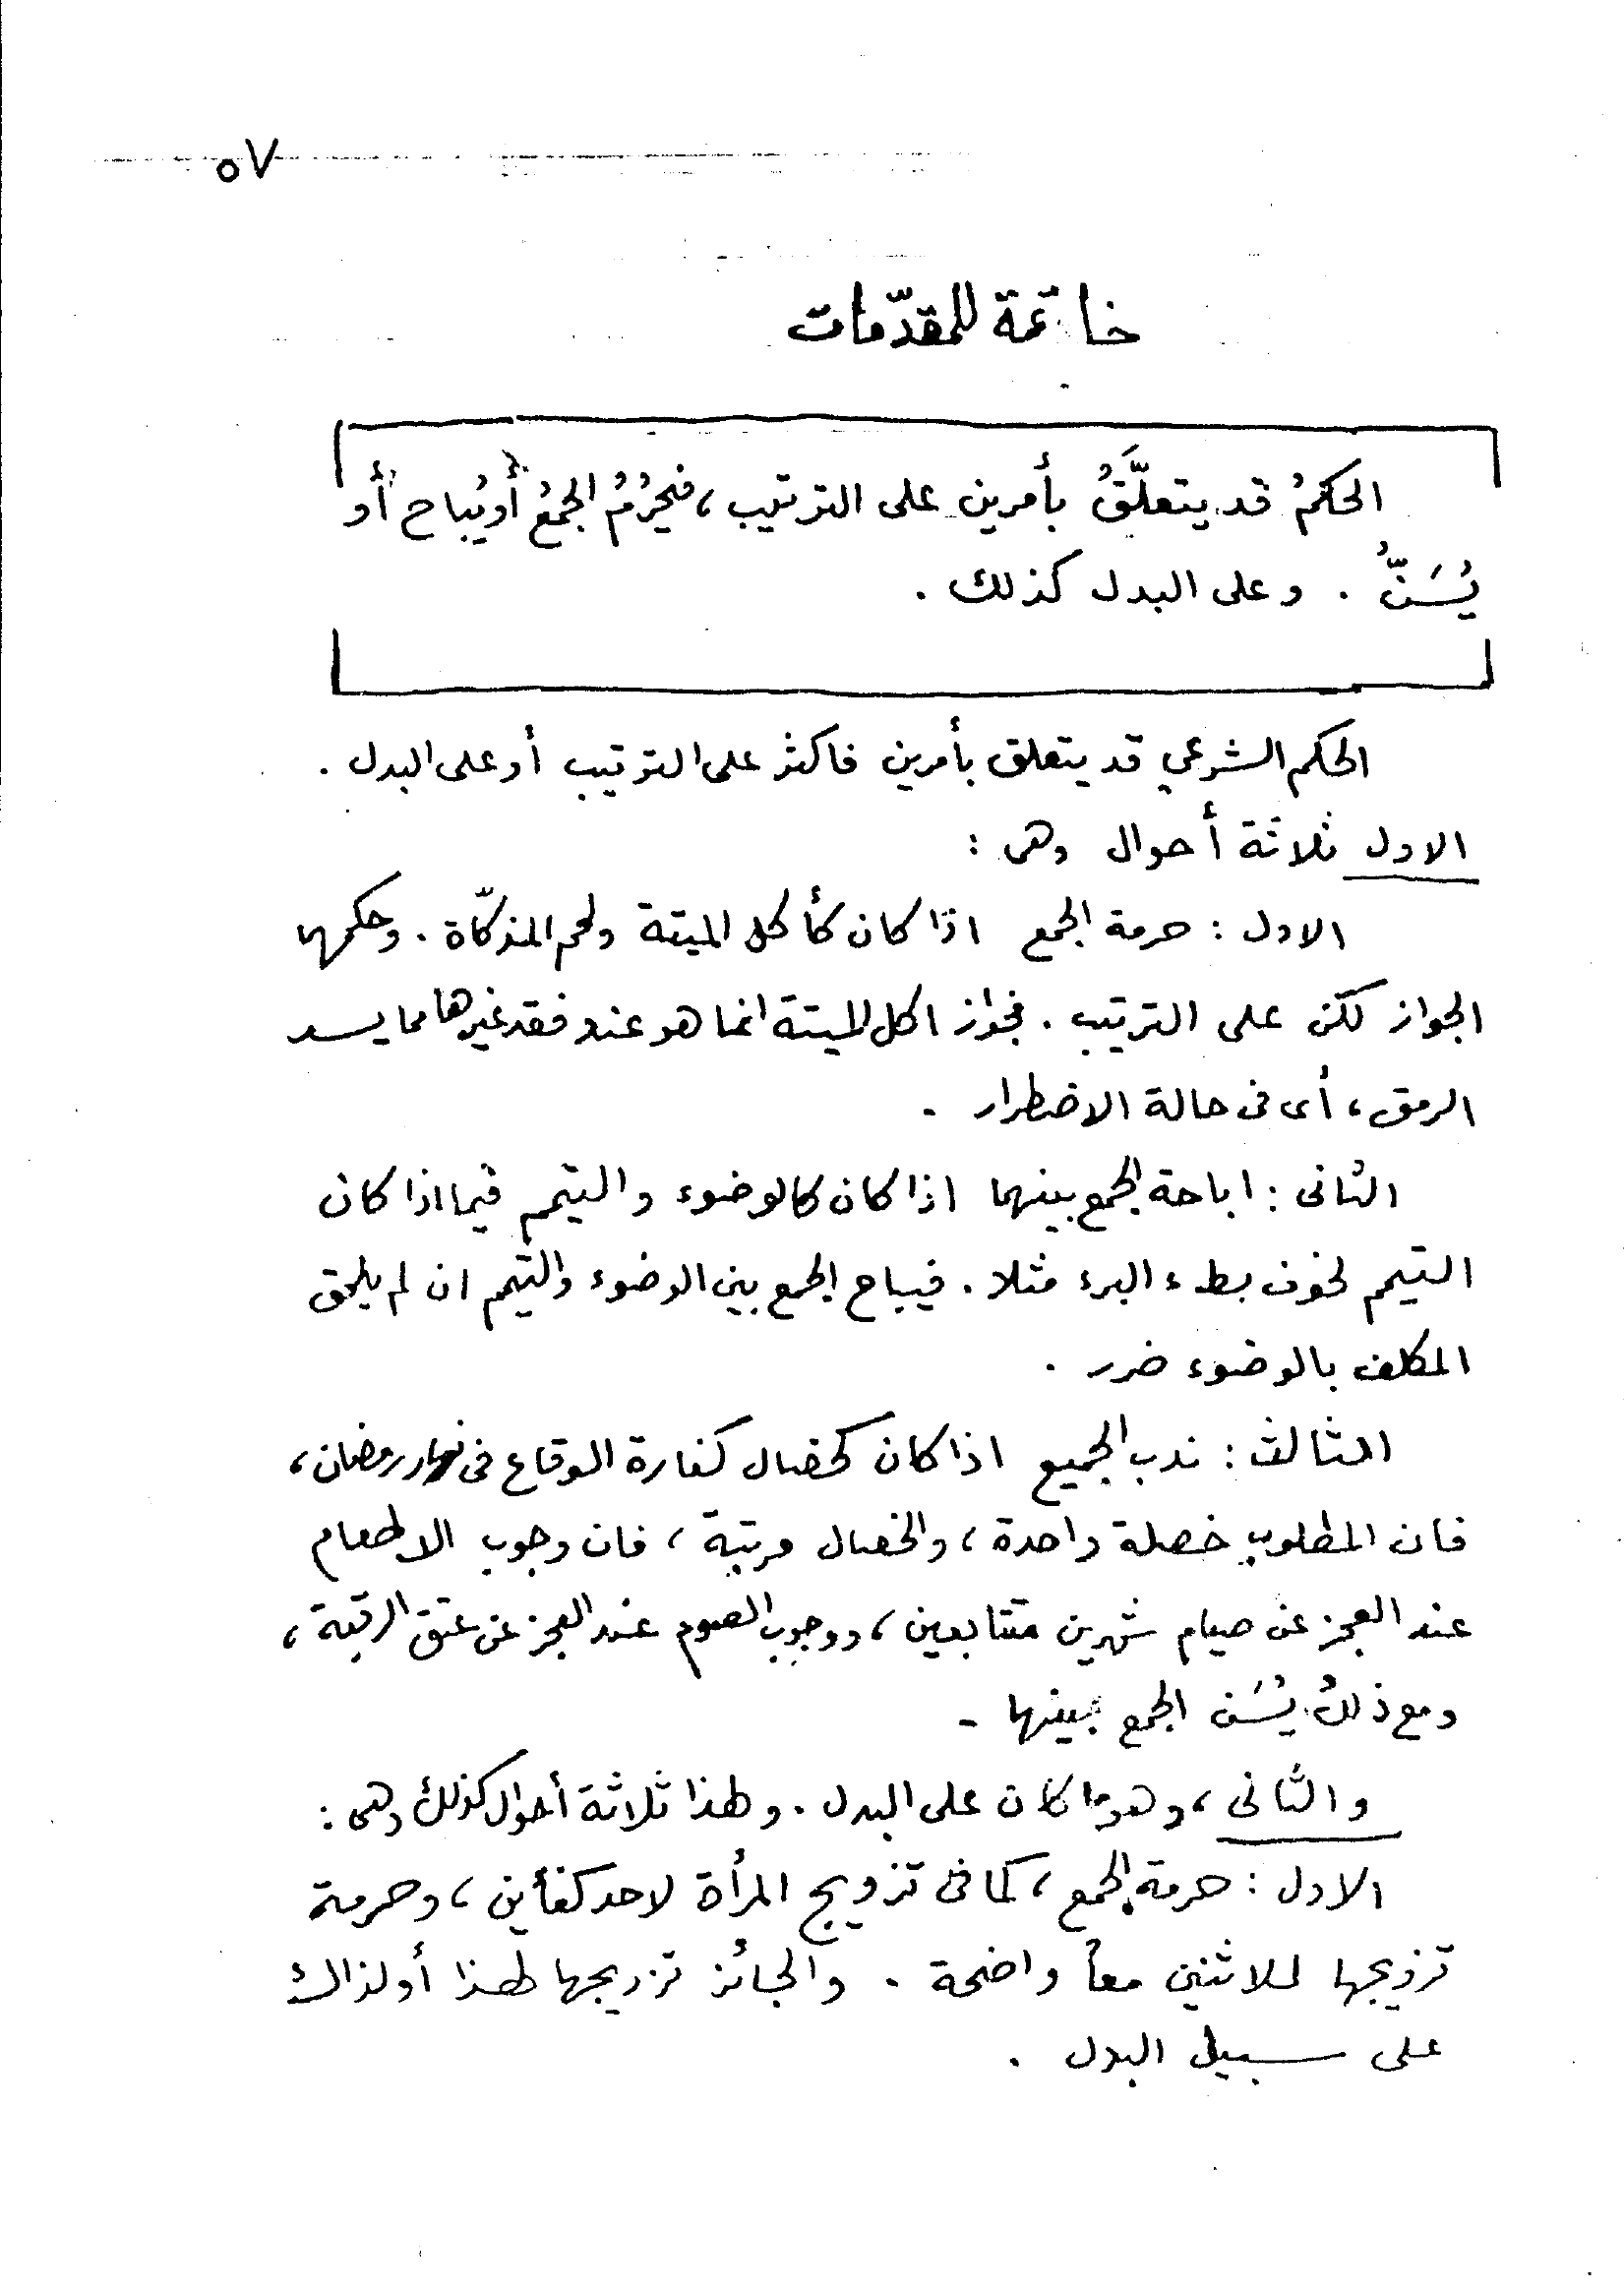 ٥٧
خاتمة للمقدّمات
الحكمُ قد يتعلَّقُ بأمرين على الترتيب، فيحرُمُ الجمعُ أو يُباح أو
يُسَنُّ . وعلى البدل كذلك .
الحكم الشرعي قد يتعلق بأمرين فاكثر على الترتيب أو على البدل .
الاول ثلاثة أحوال وهى :
الاول : حرمة الجمع اذا كان كأكل الميتة ولحم المذكّاة . وحكمها
الجواز لكن على الترتيب . فجواز اكل الميتة انما هو عند فقد غيرها مما يسد
الرمق، أى فى حالة الاضطرار .
الثانى : اباحة الجمع بينهما اذا كان كالوضوء والتيمم فيما اذا كان
التيمم لخوف بطء البرء مثلا . فيباح الجمع بين الوضوء والتيمم ان لم يلحق
المكلف بالوضوء ضرر .
الثالث : ندب الجميع اذا كان كخصال كفارة الوقاع فى نهار رمضان،
فان المطلوب خصلة واحدة، والخصال مرتبة، فان وجوب الاطعام
عند العجز عن صيام شهرين متتابعين، ووجوب الصوم عند العجز عن عتق الرقبة،
ومع ذلك يُسَن الجمع بينها .
والثانى، وهو ما كان على البدل . ولهذا ثلاثة أحوال كذلك وهى :
الاول : حرمة الجمع، كما فى تزويج المرأة لاحد كفأين، وحرمة
تزويجها للاثنين معاً واضحة . والجائز تزويجها لهذا أو لذاك
على سبيل البدل .